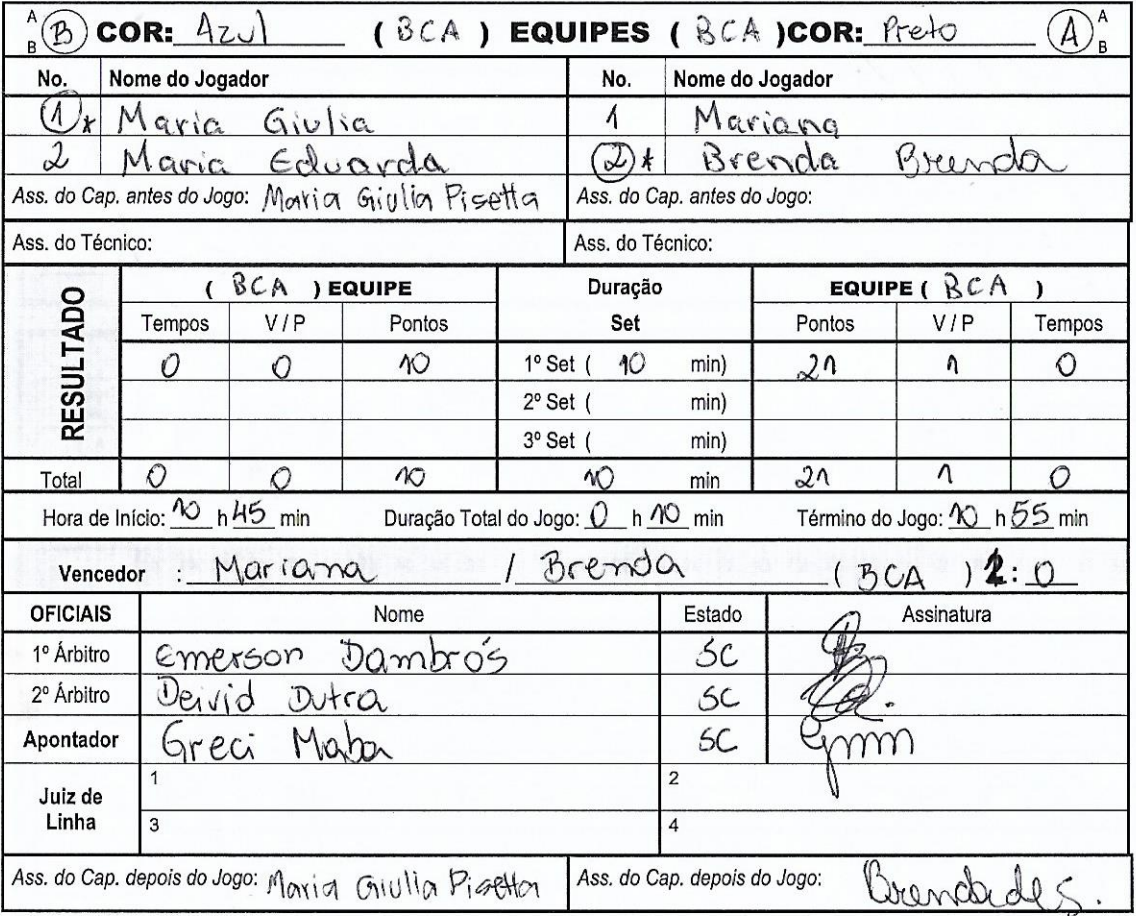 A B (B) COR: Azul ( BCA ) EQUIPES ( BCA )COR: Preto (A) A B
No. Nome do Jogador No. Nome do Jogador
1* Maria Giulia 1 Mariana
2 Maria Eduarda 2* Brenda Brenda
Ass. do Cap. antes do Jogo: Maria Giulia Pisetta Ass. do Cap. antes do Jogo:
Ass. do Técnico: Ass. do Técnico:
RESULTADO
( BCA ) EQUIPE Duração EQUIPE ( BCA )
Tempos V / P Pontos Set Pontos V / P Tempos
0 0 10 1º Set ( 10 min) 21 1 0
2º Set ( min)
3º Set ( min)
Total 0 0 10 10 min 21 1 0
Hora de Início: 10 h 45 min Duração Total do Jogo: 0 h 10 min Término do Jogo: 10 h 55 min
Vencedor : Mariana / Brenda ( BCA ) 1: 0
OFICIAIS Nome Estado Assinatura
1º Árbitro Emerson Dambrós SC
2º Árbitro Deivid Dutra SC
Apontador Greci Maba SC
Juiz de Linha 1 2
3 4
Ass. do Cap. depois do Jogo: Maria Giulia Pisetta Ass. do Cap. depois do Jogo: